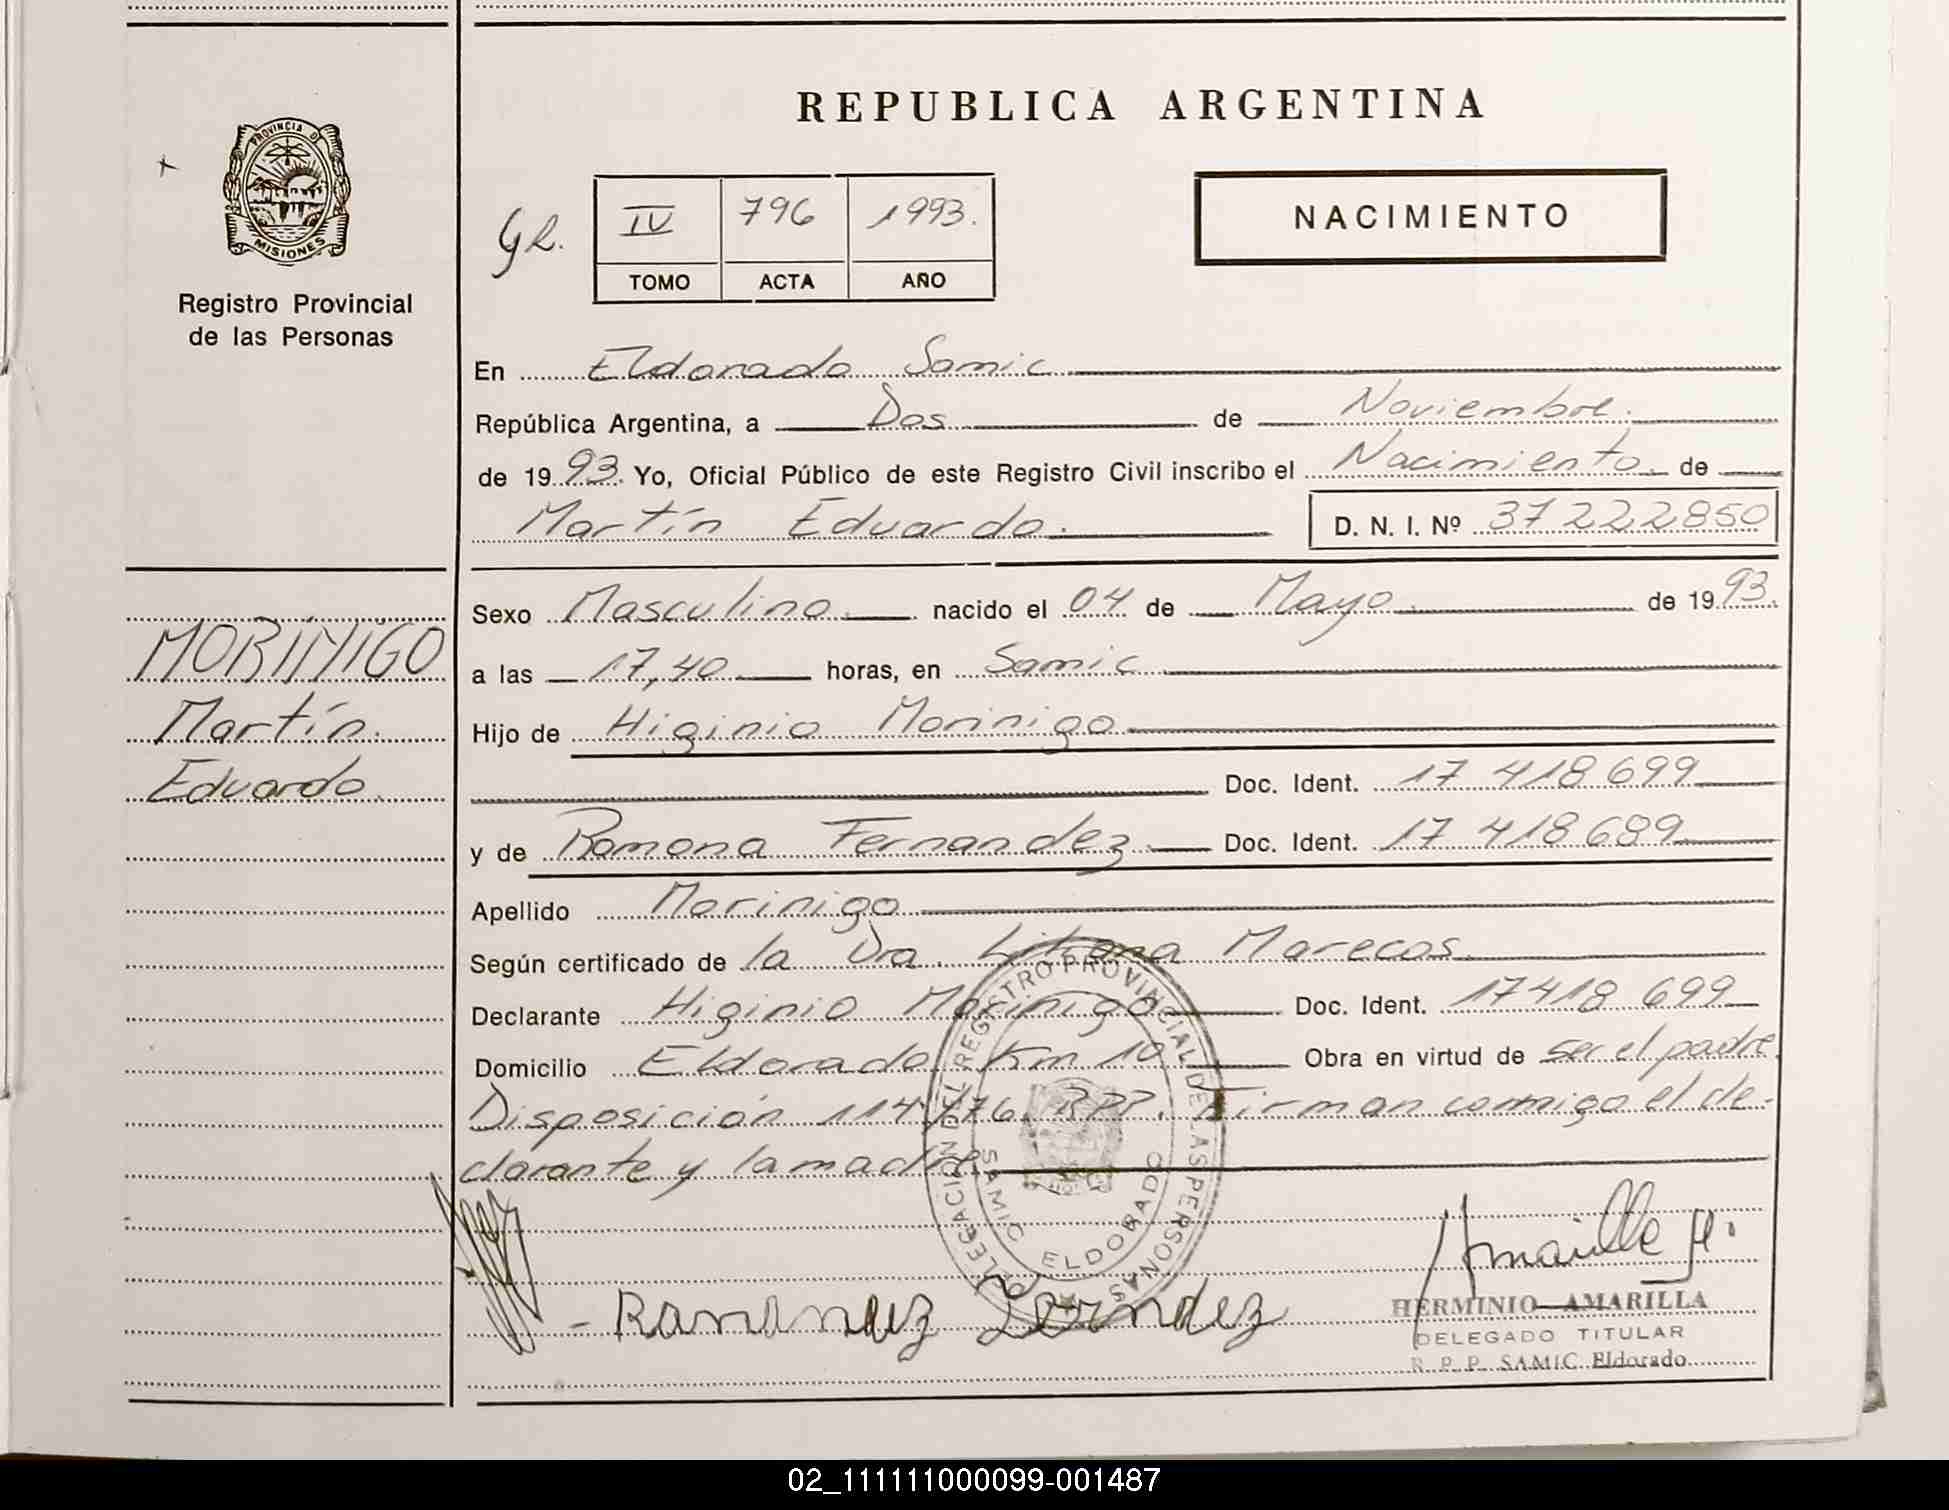 REPUBLICA ARGENTINA
PROVINCIA DE
MISIONES
Registro Provincial
de las Personas
GR.
IV 796 1993.
TOMO ACTA AÑO
NACIMIENTO
En Eldorado Samic
República Argentina, a Dos de Noviembre.
de 1993. Yo, Oficial Público de este Registro Civil inscribo el Nacimiento de
Martín Eduardo. D. N. I. Nº 37 222 850
Sexo Masculino. nacido el 04 de Mayo de 1993.
MORÍNIGO
Martín
Eduardo
a las 17,40 horas, en Samic
Hijo de Higinio Morinigo
Doc. Ident. 17 418 699
y de Ramona Fernandez Doc. Ident. 17 418 689
Apellido Morinigo
Según certificado de la Dra. Liliana Marecos.
Declarante Higinio Morinigo Doc. Ident. 17418 699
Domicilio Eldorado Km 10 Obra en virtud de ser el padre.
Disposición 114/76. RPP. Firman conmigo el de-
clarante y la madre
DELEGACION DEL REGISTRO PROVINCIAL DE LAS PERSONAS
SAMIC ELDORADO
Amarilla H.
HERMINIO AMARILLA
DELEGADO TITULAR
R. P. P. SAMIC Eldorado
02_111111000099-001487